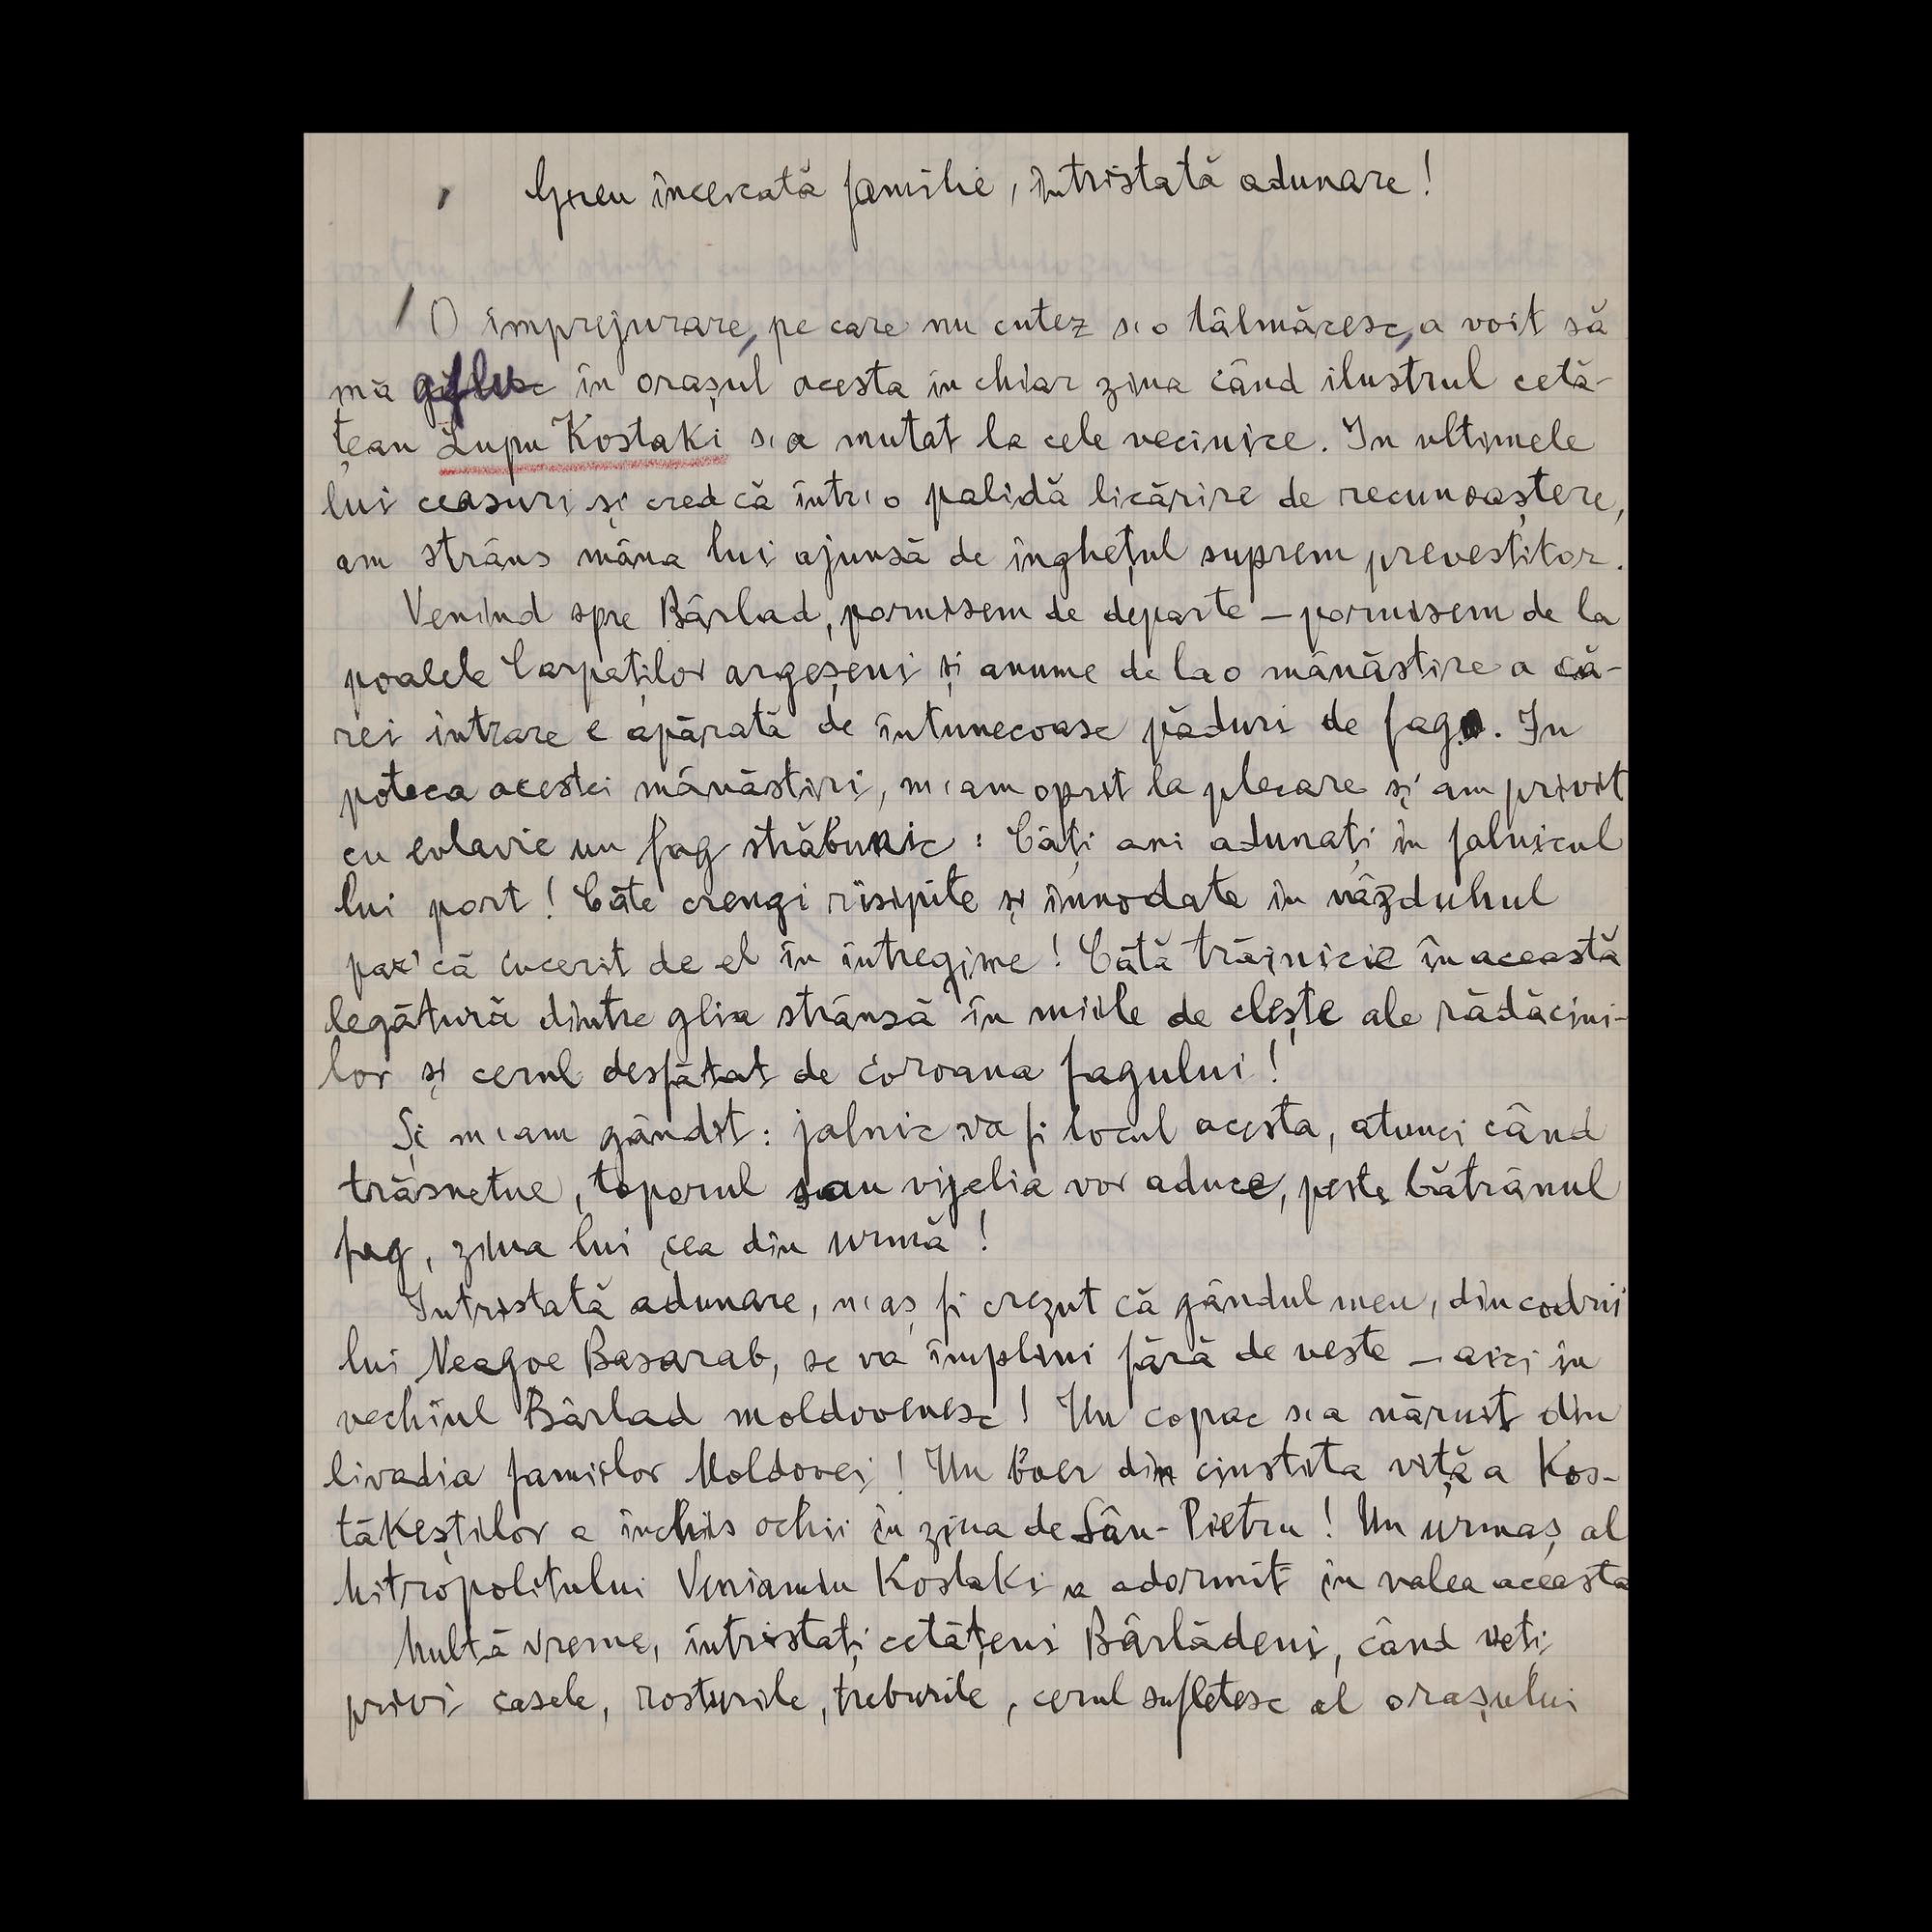 Greu încercată familie, întristată adunare!
O împrejurare, pe care nu cutez s'o tâlmăcesc, a voit să
mă aflu în orașul acesta în chiar ziua când ilustrul cetă-
țean Lupu Kostaki s'a mutat la cele vecinice. In ultimele
lui ceasuri și cred că într'o palidă licărire de recunoaștere,
am strâns mâna lui ajunsă de înghețul suprem prevestitor.
Venind spre Bârlad, pornisem de departe — pornisem de la
poalele Carpaților argeșeni și anume de la o mânăstire a că-
rei intrare e apărată de întunecoase păduri de fag. In
poteca acestei mânăstiri, m'am oprit la plecare și am privit
cu evlavie un fag străbunic: Câți ani adunați în falnicul
lui port! Câte crengi risipite și înnodate în văzduhul
par'că cucerit de el în întregime! Câtă trăinicie în această
legătură dintre glia strânsă în miile de clește ale rădăcini-
lor și cerul desfătat de coroana fagului!
Și m'am gândit: jalnic va fi locul acesta, atunci când
trăsnetue, toporul sau vijelia vor aduce, peste bătrânul
fag, ziua lui cea din urmă!
Intristată adunare, n'aș fi crezut că gândul meu, din codrii
lui Neagoe Basarab, se va împlini fără de veste — aici în
vechiul Bârlad moldovenesc! Un copac s'a năruit din
livadia famiilor Moldovei! Un boer din cinstita viță a Kos-
tăkeștilor a închis ochii în ziua de Sân-Pietru! Un urmaș al
Mitropolitului Veniamin Kostaki a adormit în valea aceasta
Multă vreme, întristați cetățeni Bârlădeni, când veți
privi casele, rosturile, treburile, cerul sufletesc al orașului